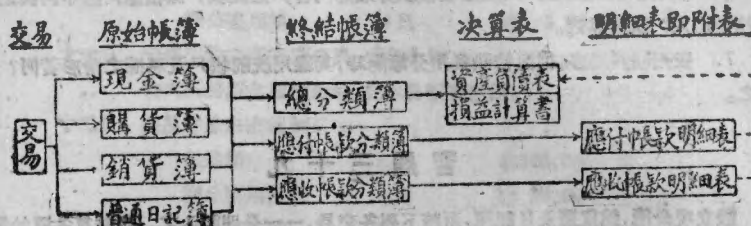 交易 原始帳簿 終結帳簿 決算表 明細表即附表
現金簿
購貨簿
銷貨簿
普通日記簿
交易
總分類簿
應付帳款分類簿
應收帳款分類簿
資產負債表
損益計算書
應付帳款明細表
應收帳款明細表